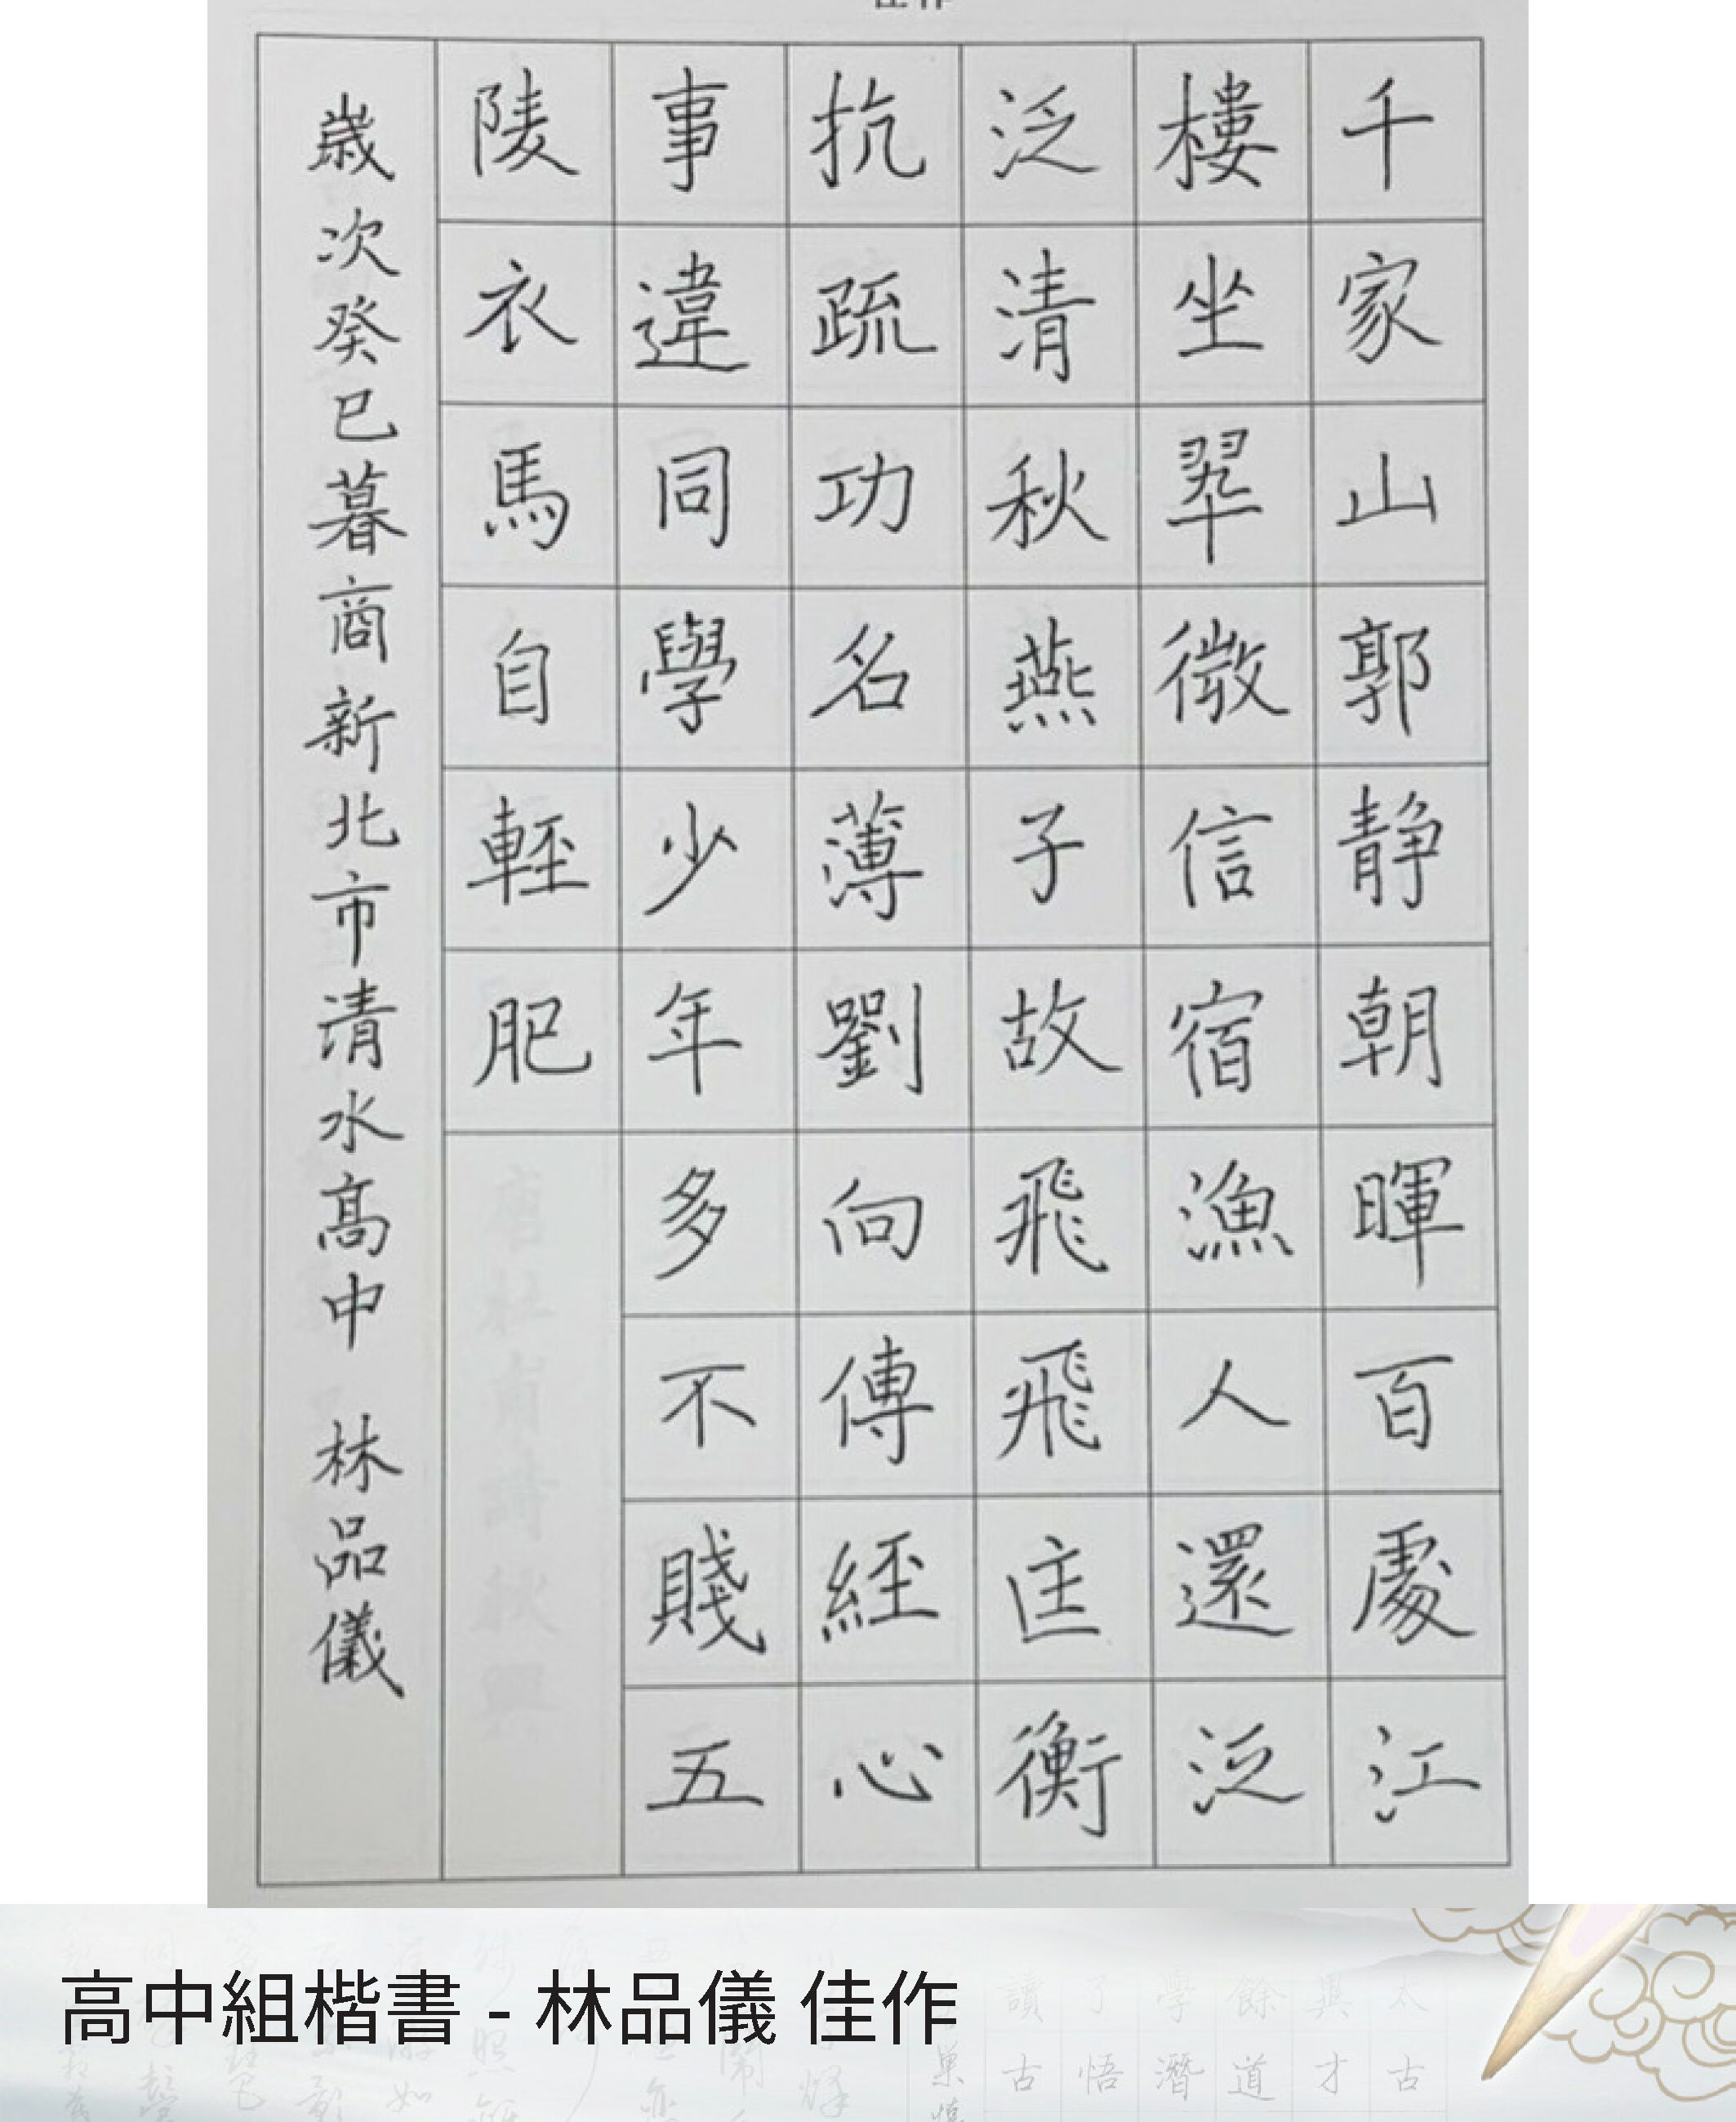 千家山郭靜朝暉百處江
樓坐翠微信宿漁人還泛
泛清秋燕子故飛飛匡衡
抗疏功名薄劉向傳經心
事違同學少年多不賤五
陵衣馬自輕肥
歲次癸巳暮商新北市清水高中 林品儀
高中組楷書 - 林品儀 佳作